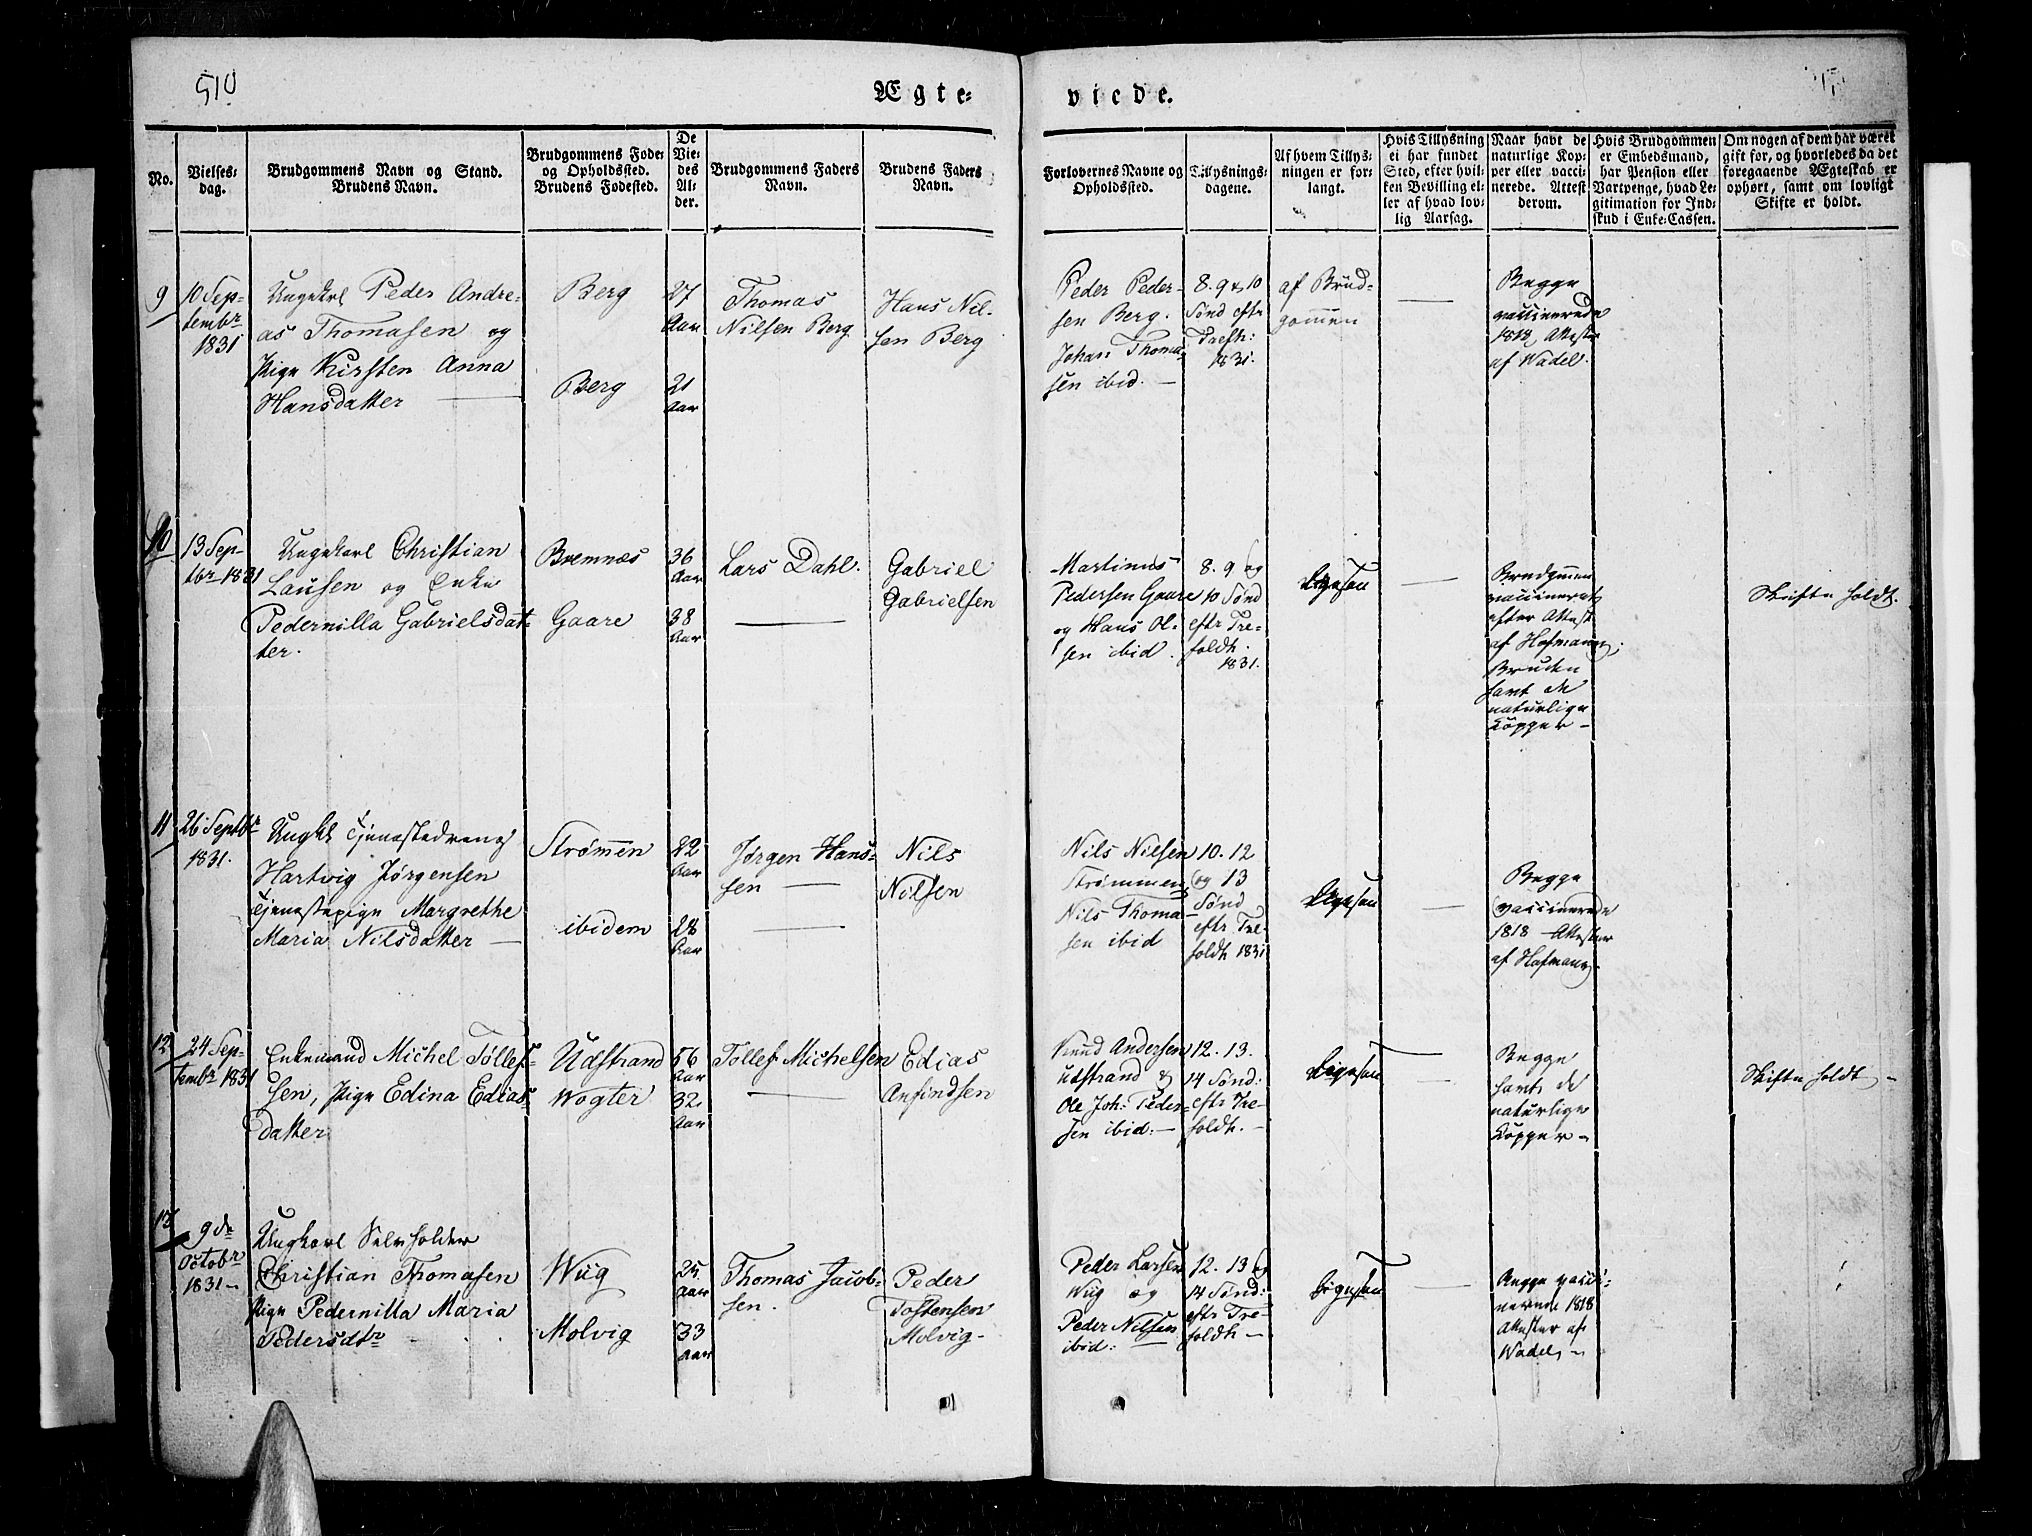 510
Ægte-
viede.
No.
Vielses-
dag.
Brudgommens Navn og Stand.
Brudens Navn.
Brudgommens Føde-
og Opholdssted.
Brudens Fødested.
De
Vie-
des
Al-
der.
Brudgommens Faders
Navn.
Brudens Faders
Navn.
Forlovernes Navne og
Opholdssted.
Tillysnings-
dagene.
Af hvem Tillys-
ningen er for-
langt.
Hvis Tillysning
ei har fundet
Sted, efter hvil-
ken Bevilling el-
ler af hvad lov-
lig Aarsag.
Naar havt de
naturlige Kop-
per eller vacci-
nerede. Attest
derom.
Hvis Brudgommen
er Embedsmand,
har Pension eller
Vartpenge, hvad Le-
gitimation for Ind-
skud i Enke-Cassen.
Om nogen af dem har været
gift for, og hvorledes da det
foregaaende Ægteskab er
ophørt, samt om lovligt
Skifte er holdt.
9
10 Sep-
tembr
1831
Ungkarl Peder Andre-
as Thomasen og
Pige Kirsten Anna
Hansdatter
Berg
Berg
27
Aar
21
Aar
Thomas
Nilsen Berg
Hans Nil-
sen Berg
Peder Peder-
sen Berg.
Johan Thoma-
sen ibid.
8. 9 & 10
Sønd eftr
Trefh:
1831.
af Brud-
gommen
Begge
vaccinerede
Attester
af Wadel.
10
13 Sep-
tbr 1831
Ungekarl Christian
Lausen og Enke
Pedernilla Gabrielsdat-
ter.
Bremnæs
Gaare
36
Aar
38
Aar
Lars Dahl.
Gabriel
Gabrielsen
Martinus
Pedersen Gaare
og Hans Ol-
sen ibid.
8. 9 og
10 Sønd
eftr Tre-
foldh.
1831.
Ligesaa
Brudgommen
vaccineret
efter Attest
af Hofmann,
Bruden
havt de
naturlige
Kopper
Skifte holdt.
11
26 Septbr
1831.
Ungk Tjenestedreng
Hartvig Jørgensen
Tjenestepige Margrethe
Maria Nilsdatter
Strømmen
ibidem
22
Aar
28
Aar
Jørgen Hans-
sen
Nils
Nilsen
Nils Nilsen
Strømmen
Nils Thoma-
sen ibid
10. 12
og 13
Sønd
eftr Tre-
foldh 1831
Ligesaa
Begge
vaccinerede
1818 Attester
af Hofmann.
12
24 Sep-
tembr 1831
Enkemand Michel Tollef-
sen, Pige Edina Edias-
datter
Udstrand
Wogter
56
Aar
32
Aar
Tollef Michelsen
Edias
Anfindsen
Knud Andersen
udstrand &
Ole Joh: Peder-
sen ibid:
12. 13.
14 Sønd:
eftr Tre-
foldh.
Ligesaa
Begge
havt de
naturlige
Kopper
Skifte holdt
13
9de
Octobr
1831
Ungkarl Selvholder
Christian Thomasen
Pige Pedernilla Maria
Pedersdtr
Wiig
Molvig
25
Aar
33
Aar
Thomas Jacob-
sen.
Peder
Tostensen
Molvig
Peder Larsen
Wiig og
Peder Nilsen
ibid:
12. 13 og
14 Sønd:
eftr Tre-
foldh
Ligesaa
Begge vacci-
nerede 1818
Attester af
Wadel